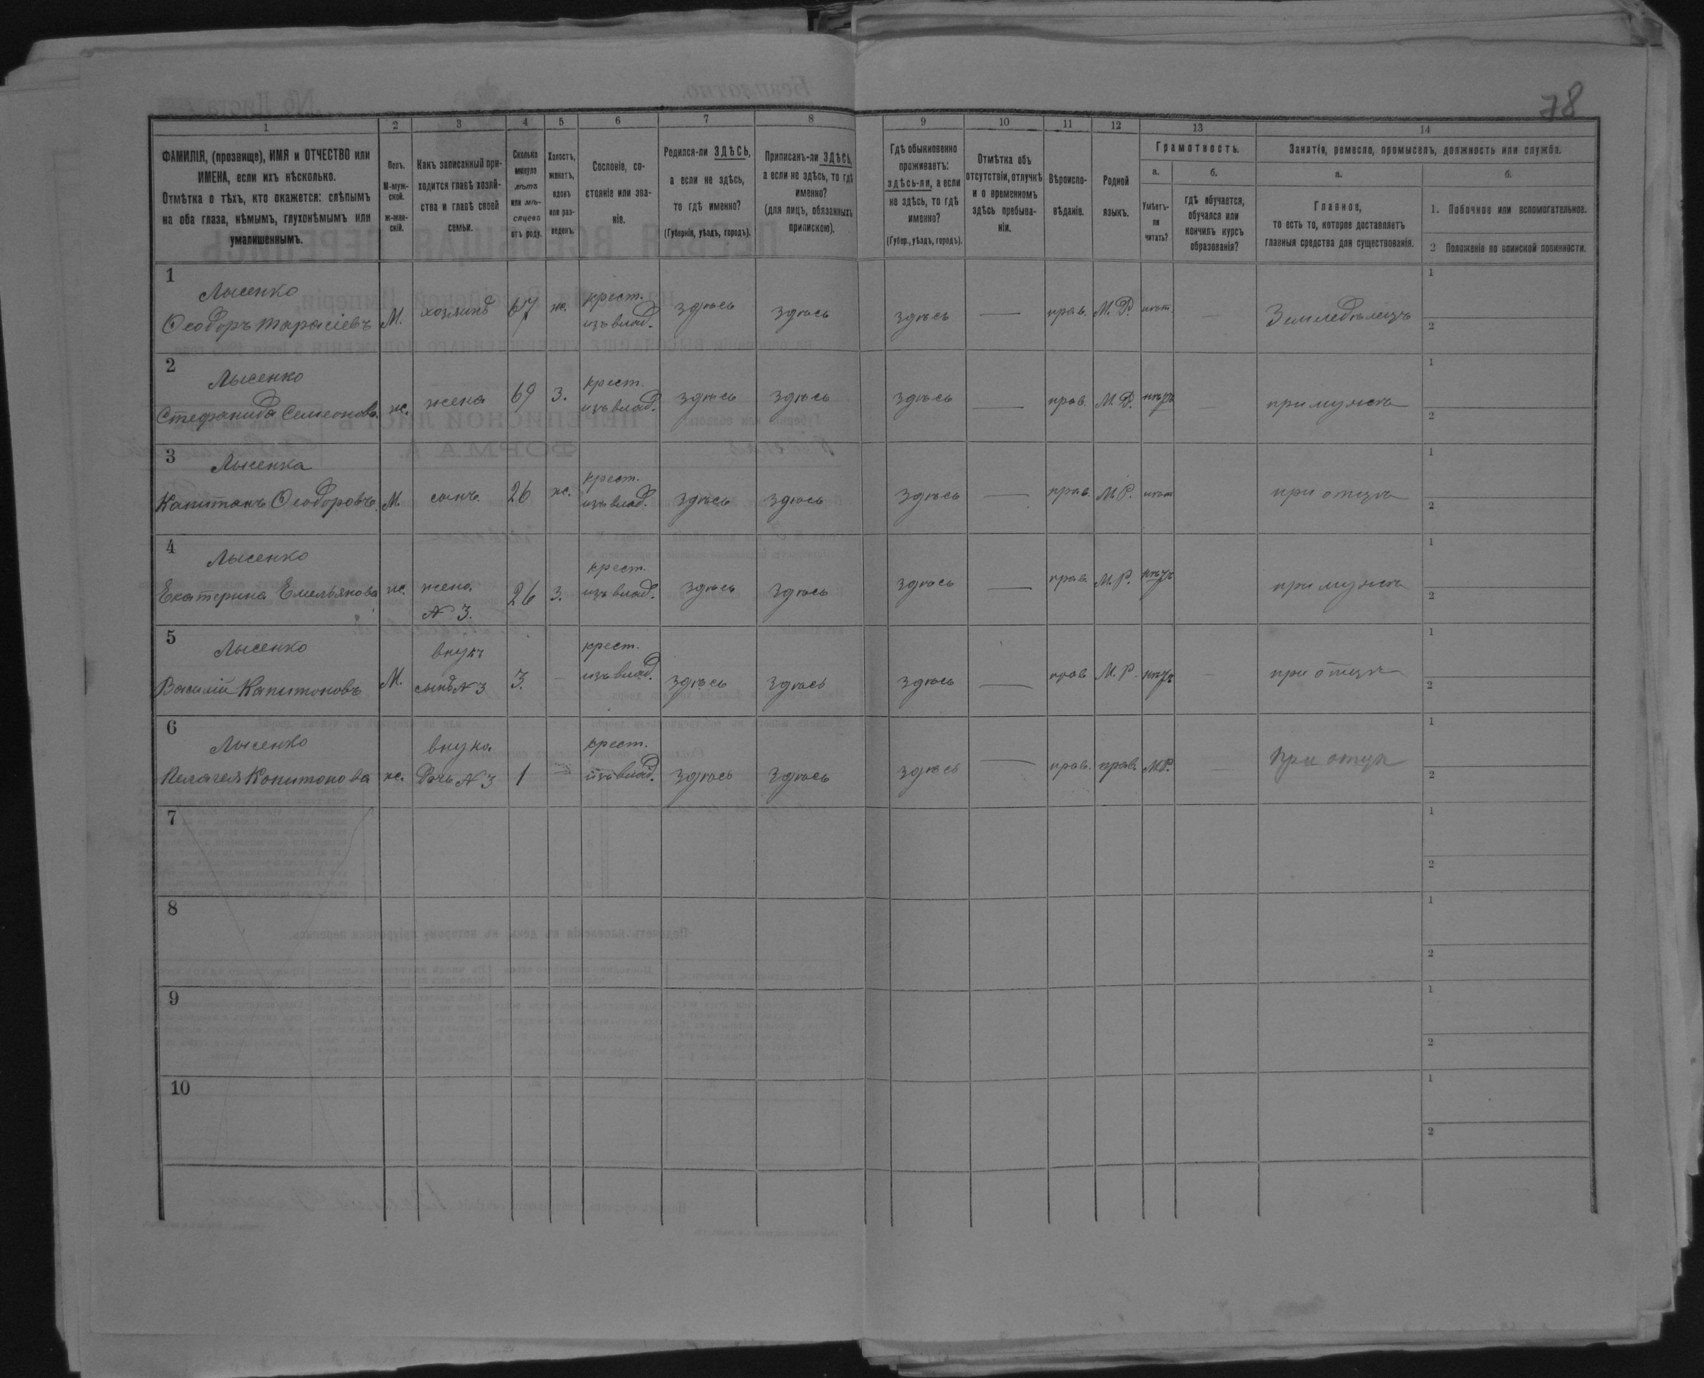 78
1 2 3 4 5 6 7 8 9 10 11 12 13 14
ФАМИЛІЯ, (прозвище), ИМЯ и ОТЧЕСТВО или
ИМЕНА, если ихъ нѣсколько.
Отмѣтка о тѣхъ, кто окажется: слѣпымъ
на оба глаза, нѣмымъ, глухонѣмымъ или
умалишеннымъ.
Полъ.
М-муж-
ской.
ж-жен-
скій.
Какъ записанный при-
ходится главѣ хозяй-
ства и главѣ своей
семьи.
Сколько
минуло
лѣтъ
или мѣ-
сяцевъ
отъ роду.
Холостъ,
женатъ,
вдовъ
или раз-
веденъ.
Сословіе, со-
стояніе или зва-
ніе.
Родился-ли ЗДѢСЬ,
а если не здѣсь,
то гдѣ именно?
(Губернія, уѣздъ, городъ).
Приписанъ-ли ЗДѢСЬ,
а если не здѣсь, то гдѣ
именно?
(для лицъ, обязанныхъ
припискою).
Гдѣ обыкновенно
проживаетъ:
здѣсь-ли, а если
не здѣсь, то гдѣ
именно?
(Губер., уѣздъ, городъ).
Отмѣтка объ
отсутствіи, отлучкѣ
и о временномъ
здѣсь пребыва-
ніи.
Вѣроиспо-
вѣданіе.
Родной
языкъ.
Грамотность.
а.
Умѣетъ-
ли
читать?
б.
гдѣ обучается,
обучался или
кончилъ курсъ
образованія?
Занятіе, ремесло, промыселъ, должность или служба.
а.
Главное,
то есть то, которое доставляетъ
главныя средства для существованія.
б.
1. Побочное или вспомогательное.
2 Положеніе по воинской повинности.
1
Лысенко крест. 1
Ѳеодоръ Тарасіевъ М. хозяинъ 67 ж. изъ влад. здѣсь здѣсь здѣсь — прав. М. Р. — Земледѣлецъ 2
2
Лысенко крест. 1
Стефанида Семеонова ж. жена 69 З. изъ влад. здѣсь здѣсь здѣсь — прав. М. Р. — при мужѣ 2
3
Лысенка крест. 1
Капитонъ Ѳеодоровъ М. сынъ 26 ж. изъ влад. здѣсь здѣсь здѣсь — прав. М. Р. при отцѣ 2
4
Лысенко крест. 1
Екатерина Емельянова ж. жена 26 З. изъ влад. здѣсь здѣсь здѣсь — прав. М. Р. при мужѣ 2
№ 3.
5
Лысенко внукъ крест. 1
Василій Капитоновъ М. сынъ № 3 3. — изъ влад. здѣсь здѣсь здѣсь — прав. М. Р. — при отцѣ 2
6
Лысенко внука крест. 1
Пелагея Копитонова ж. дочь № 3 1 изъ влад. здѣсь здѣсь здѣсь — прав. прав. М. Р. — при отцѣ 2
7 1
2
8 1
2
9 1
2
10 1
2